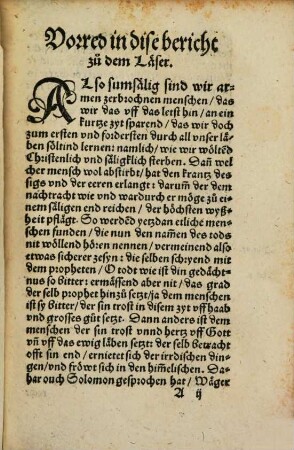 Vorred in dise bericht
zů dem Läser.
ALso sumsälig sind wir ar⸗
men zerbrochnen menschen / das
wir das vff das lerst hin / an ein
kurtze zyt sparend / das wir doch
zum ersten vnd fordersten durch all vnser lä⸗
ben söltind lernen: namlich / wie wir wöltēd
Christenlich vnd säligklich sterben. Dañ wel
cher mensch wol abstirbt / hat den krantz des
sigs vnd der eeren erlangt: darum̃ der dem
nachtracht wie vnd wardurch er möge zů ei
nem säligen end reichen / der höchsten wyß⸗
heit pflägt. So werdēd yetzdan etliche men
schen funden / die nun den nam̃en des tods
nit wöllend hören nennen / vermeinend also
etwas sicherer zesyn: die selben schryend mit
dem propheten / O todt wie ist din gedächt⸗
nus so bitter: ermässend aber nit / das grad
der selb prophet hinzů setzt / ja dem menschen
ist sy bitter / der sin trost in disem zyt vff haab
vnd grosses gůt setzt. Dann anders ist dem
menschen der sin trost vnnd hertz vff Gott
vñ vff das ewig läben setzt: der selb betracht
offt sin end / ernietet sich der irrdischen din⸗
gen / vnd fröwt sich in den him̃elischen. Da⸗
har ouch Solomon gesprochen hat / Wäger
A ij